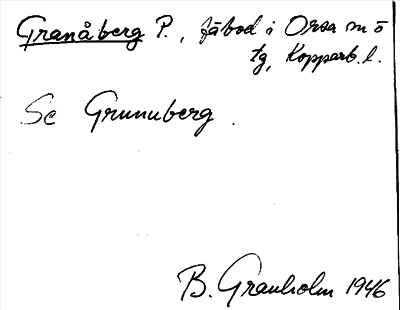 Granåberg P., fäbod i Orsa sn ö
tg, Kopparb. l.
Se Grunuberg.
B. Granholm 1946